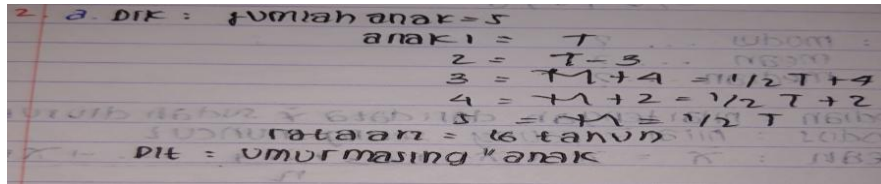 2. a. DIK : jumlah anak = 5
anak 1 = T
2 = T - 3
3 = M + 4 = 1/2 T + 4
4 = M + 2 = 1/2 T + 2
5 = M = 1/2 T
rataan = 16 tahun
Dit : umur masing" anak